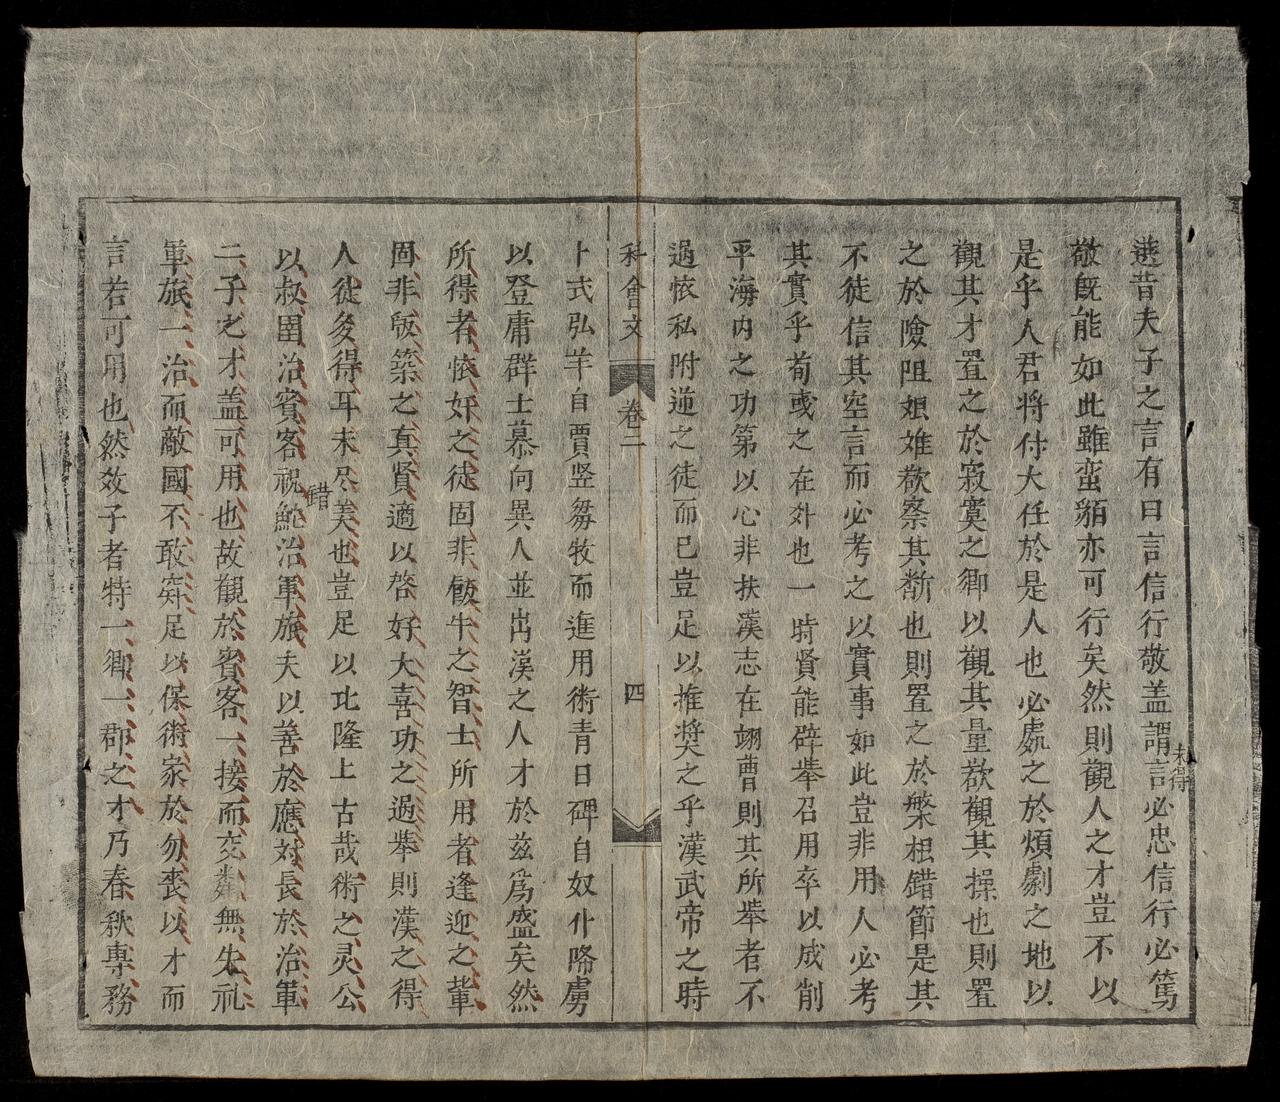 選昔夫子之言有曰言信行敬盖謂言必忠信行必篤
未得
敬旣能如此雖蛮貊亦可行矣然則觀人之才豈不以
是乎人君将付大任於是人也必處之於煩劇之地以
觀其才置之於寂寞之鄉以觀其量欲觀其操也則置
之於險阻艱难欲察其断也則置之於槃根錯節是其
不徒信其空言而必考之以實事如此豈非用人必考
其實乎荀彧之在外也一時賢能辟舉召用卒以成削
平海内之功第以心非扶漢志在翊曹則其所舉者不
過恢私附逆之徒而已豈足以推奬之乎漢武帝之時
科會文 卷二 四
卜式弘羊自賈竖芻牧而進用術青日磾自奴什降虜
以登庸群士慕向異人並出漢之人才於兹爲盛矣然
所得者恢奸之徒固非飯牛之智士所用者逢迎之輩
固非版築之真賢適以啓好大喜功之過舉則漢之得
人徒多得耳未尽美也豈足以比隆上古哉術之灵公
錯
以叔圉治賓客祝鮀治軍旅夫以善於應对長於治軍
二子之才盖可用也故觀於賓客一接而交鄰無失礼
軍旅一治而敵國不敢窺足以保術家於勿喪以才而
言若可用也然效子者特一鄉一郡之才乃春秋專務